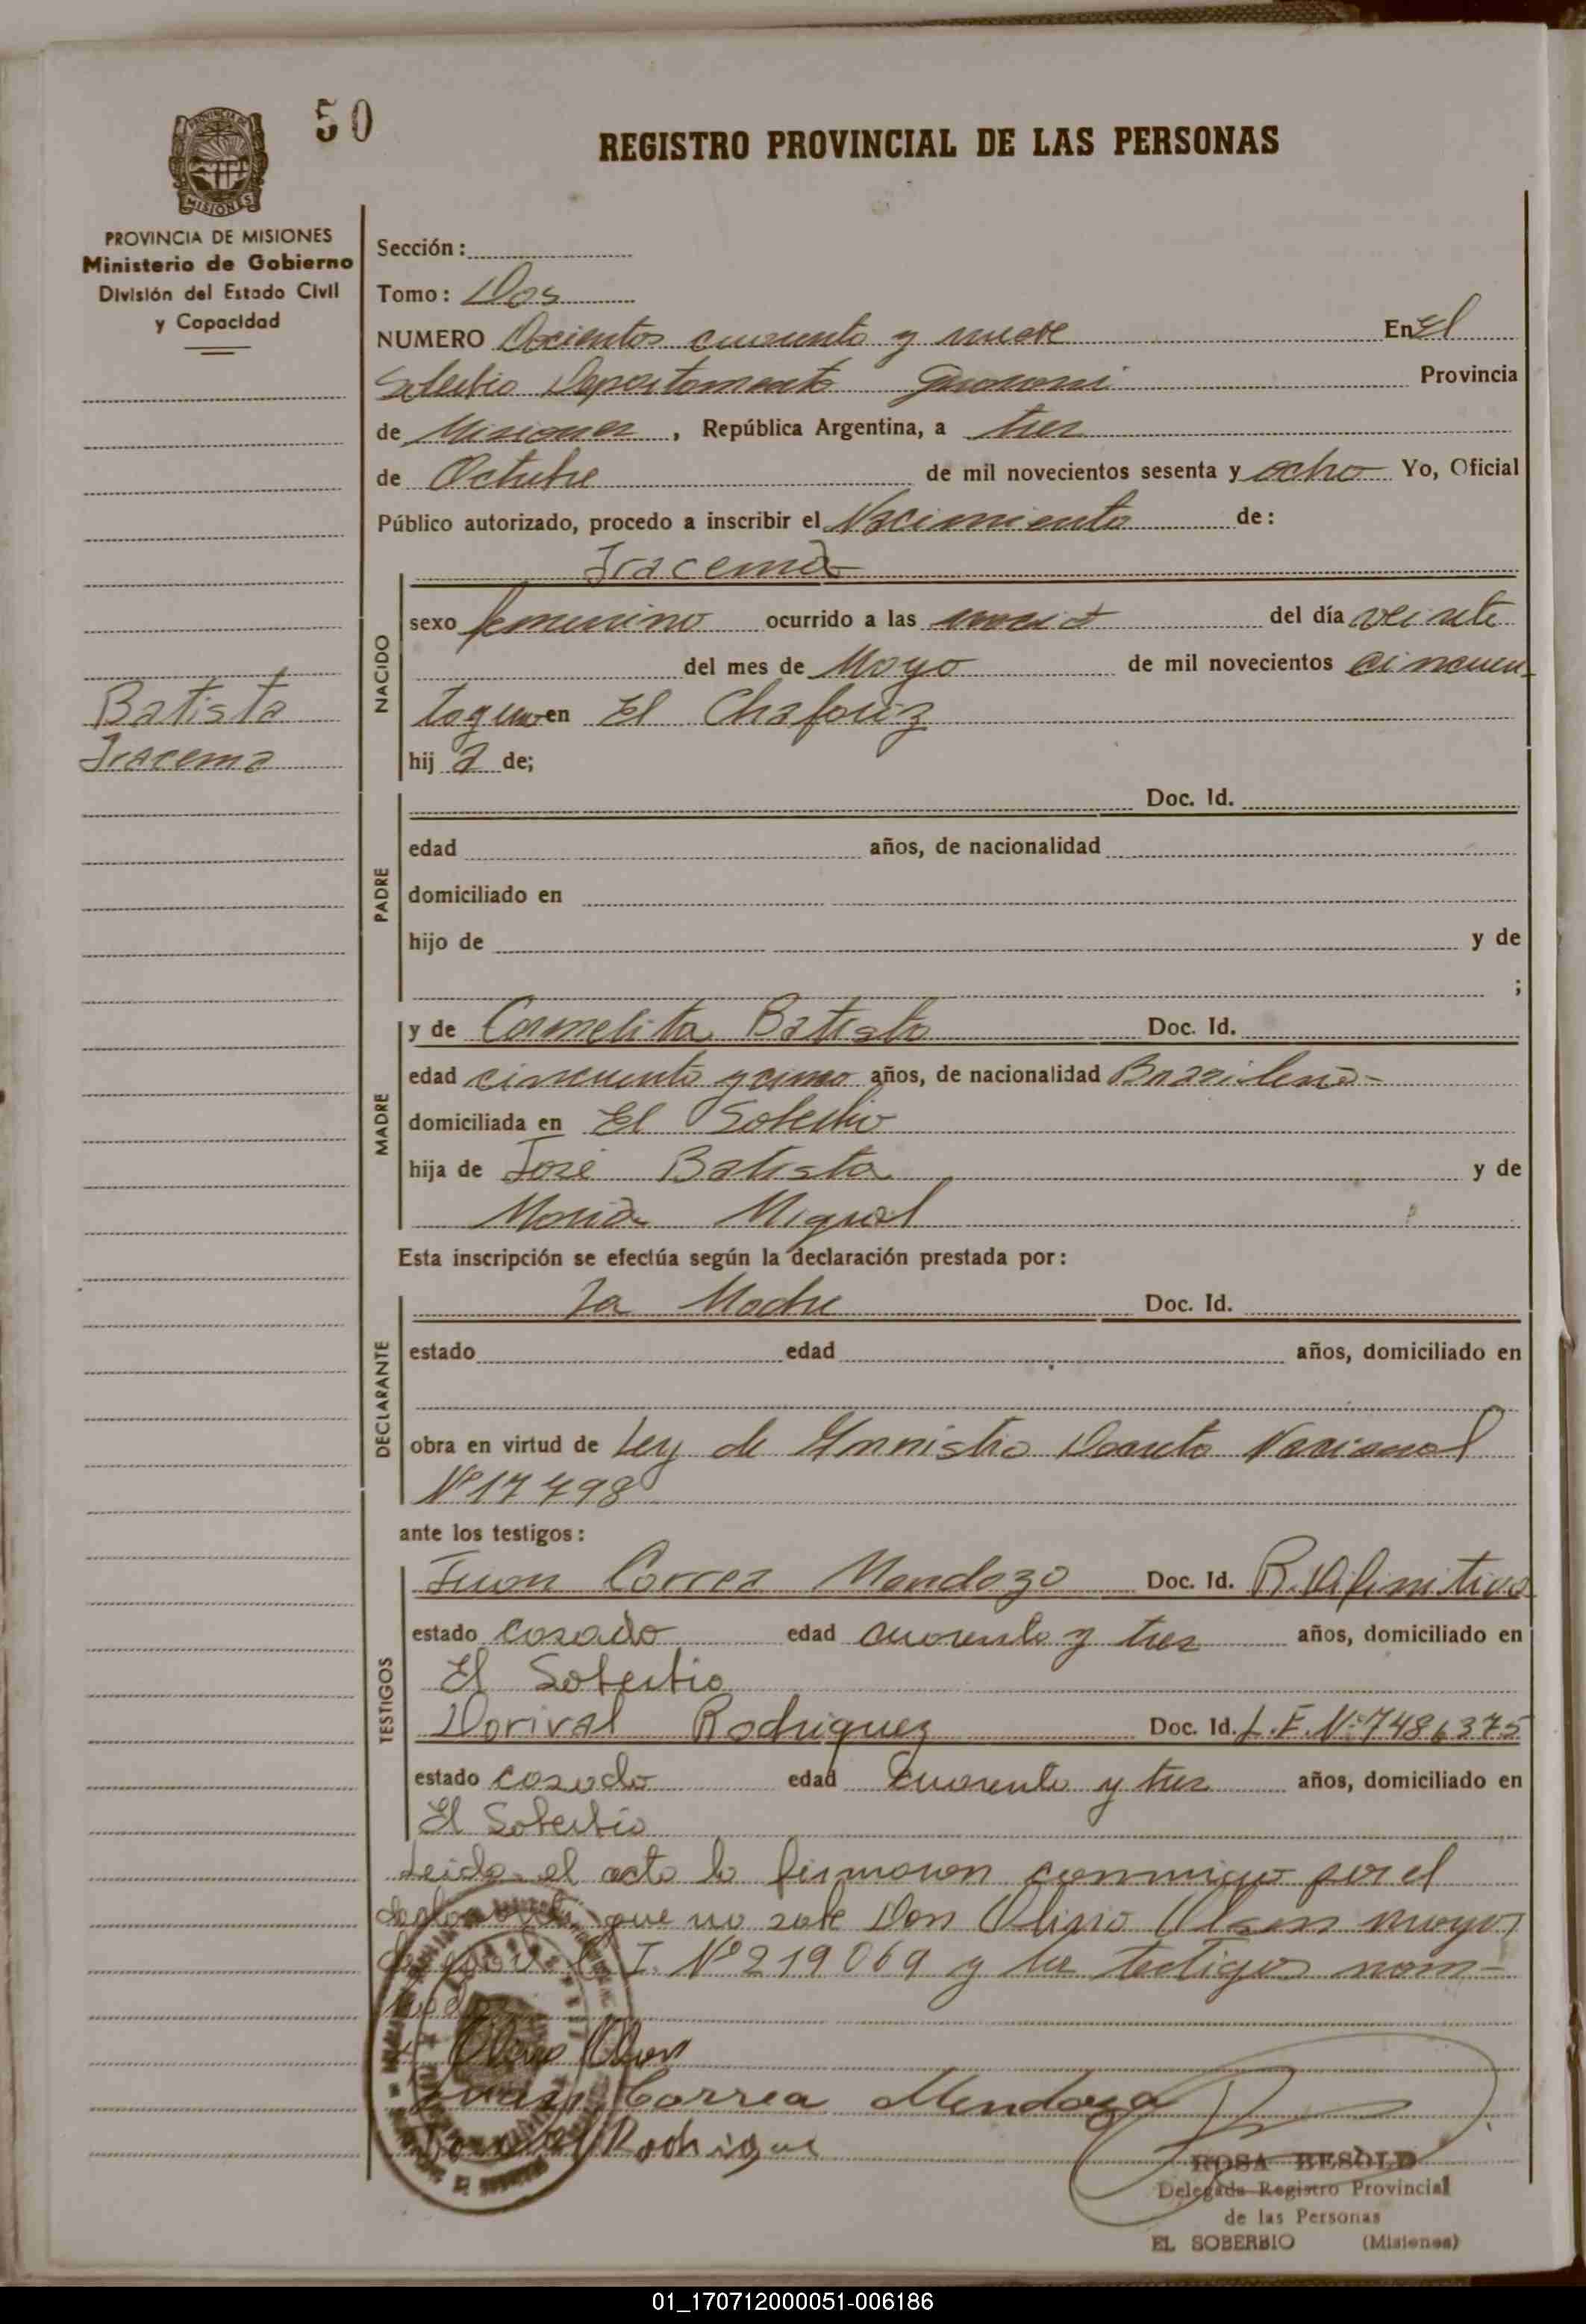 50
REGISTRO PROVINCIAL DE LAS PERSONAS
PROVINCIA DE
MISIONES
PROVINCIA DE MISIONES
Ministerio de Gobierno
División del Estado Civil
y Capacidad
Sección:
Tomo: Dos
NUMERO Docientos cuarenta y nueve En El
Soberbio Departamento Guarani Provincia
de Misiones, República Argentina, a tres
de Octubre de mil novecientos sesenta y ocho Yo, Oficial
Público autorizado, procedo a inscribir el Nacimiento de:
Iracema
NACIDO
sexo femenino ocurrido a las del día veinte
del mes de Mayo de mil novecientos cincuen
en El Chafariz
hij a de;
Batista
Iracema
PADRE
Doc. Id.
edad años, de nacionalidad
domiciliado en
hijo de y de
;
MADRE
y de Carmelita Batista Doc. Id.
edad cincuenta y cinco años, de nacionalidad Brasilena-
domiciliada en El Soberbio
hija de José Batista y de
Maria Miguel
Esta inscripción se efectúa según la declaración prestada por:
DECLARANTE
La Madre Doc. Id.
estado edad años, domiciliado en
obra en virtud de Ley de Amnistia Decreto Nacional
Nº 17498
ante los testigos:
TESTIGOS
Juan Correa Mendoza Doc. Id. R. Difinitiva
estado casado edad cuarenta y tres años, domiciliado en
El Soberbio
Dorival Rodriguez Doc. Id. L.E. Nº 7486375
estado casado edad cuarenta y tres años, domiciliado en
El Soberbio
Leida el acta lo firmaron conmigo por el
declarante que no sabe Don Olinio Olsen mayor
I. Nº 219069 y los testigos nom-
Olinio Olsen
Juan Correa Mendoza
Dorival Rodrigues
ROSA BESOLD
Delegada Registro Provincial
de las Personas
EL SOBERBIO (Misiones)
01_170712000051-006186